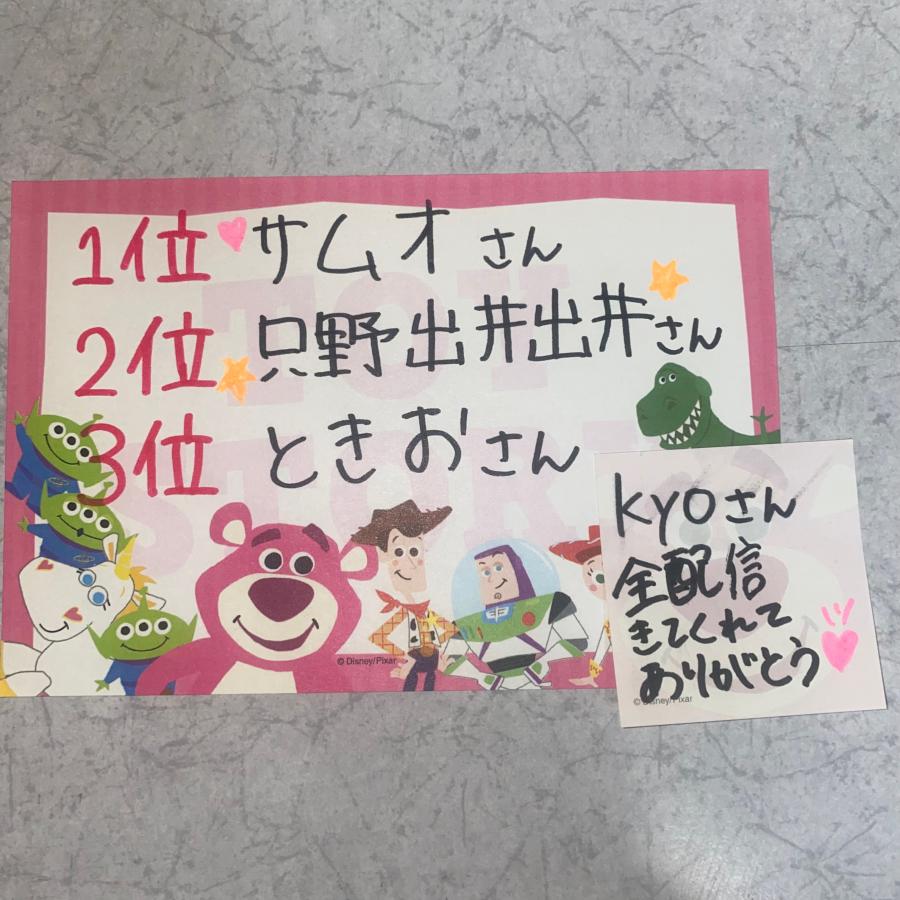 1位 サムオ さん
2位 只野出井出井さん
3位 ときおさん
TOY
STORY
© Disney/Pixar
kyoさん
全配信
きてくれて
ありがとう
© Disney/Pixar